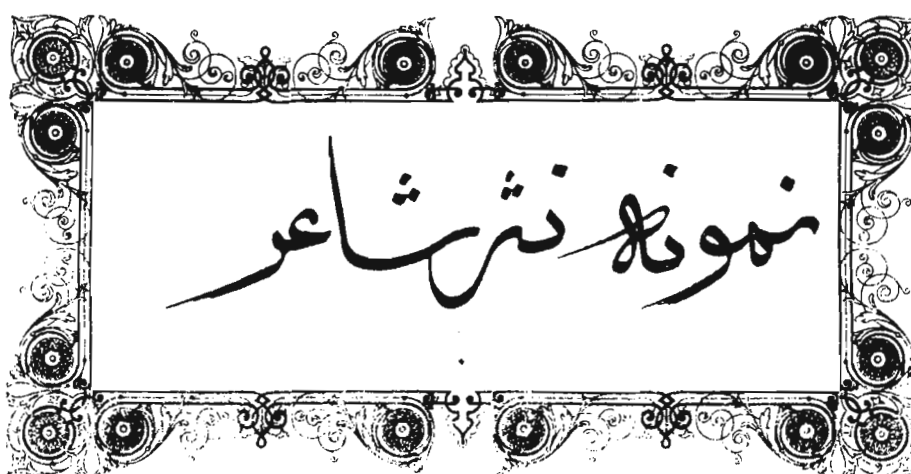 نمونه نثر شاعر